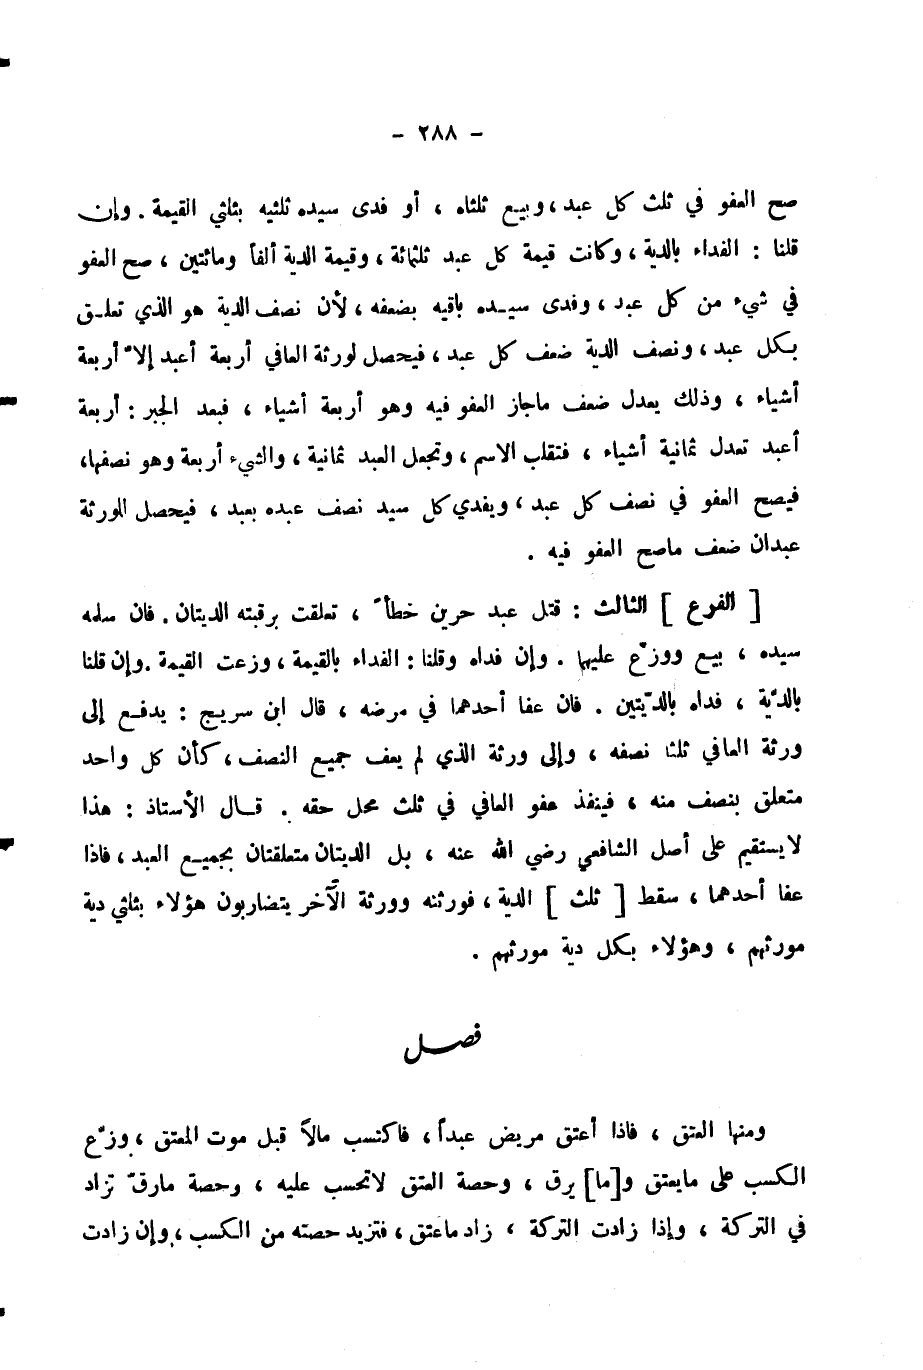 - ٢٨٨ -
صح العفو في ثلث كل عبد، وبيع ثلثاه ، أو فدى سيده ثلثيه بثلثي القيمة . وإن
قلنا : الفداء بالدية ، وكانت قيمة كل عبد ثلثمائة ، وقيمة الدية ألفاً ومائتين ، صح العفو
في شيء من كل عبد ، وفدى سيده باقيه بضعفه ، لأن نصف الدية هو الذي تعلق
بكل عبد ، ونصف الدية ضعف كل عبد ، فيحصل لورثة العافي أربعة أعبد إلاّ أربعة
أشياء ، وذلك يعدل ضعف ماجاز العفو فيه وهو أربعة أشياء ، فبعد الجبر : أربعة
أعبد تعدل ثمانية أشياء ، فتقلب الاسم ، وتجعل العبد ثمانية ، والشيء أربعة وهو نصفها،
فيصح العفو في نصف كل عبد ، ويفدي كل سيد نصف عبده بعبد ، فيحصل للورثة
عبدان ضعف ماصح العفو فيه .
[ الفرع ] الثالث : قتل عبد حرين خطأً ، تعلقت برقبته الديتان . فان سلمه
سيده ، بيع ووزّع عليها . وإن فداه وقلنا : الفداء بالقيمة ، وزعت القيمة . وإن قلنا
بالدّية ، فداه بالدّيتين . فان عفا أحدهما في مرضه ، قال ابن سريج : يدفع إلى
ورثة العافي ثلثا نصفه ، وإلى ورثة الذي لم يعف جميع النصف ، كأن كل واحد
متعلق بنصف منه ، فينفذ عفو العافي في ثلث محل حقه . قال الأستاذ : هذا
لايستقيم على أصل الشافعي رضي الله عنه ، بل الديتان متعلقتان بجميع العبد ، فاذا
عفا أحدهما ، سقط [ ثلث ] الدية ، فورثته وورثة الآخر يتضاربون هؤلاء بثلثي دية
مورثهم ، وهؤلاء بكل دية مورثهم .
فصل
ومنها العتق ، فاذا أعتق مريض عبداً ، فاكتسب مالاً قبل موت المعتق ، وزّع
الكسب على مايعتق و[ما] يرق ، وحصة العتق لاتحسب عليه ، وحصة مارقّ تزاد
في التركة ، وإذا زادت التركة ، زاد ماعتق ، فتزيد حصته من الكسب ، وإن زادت